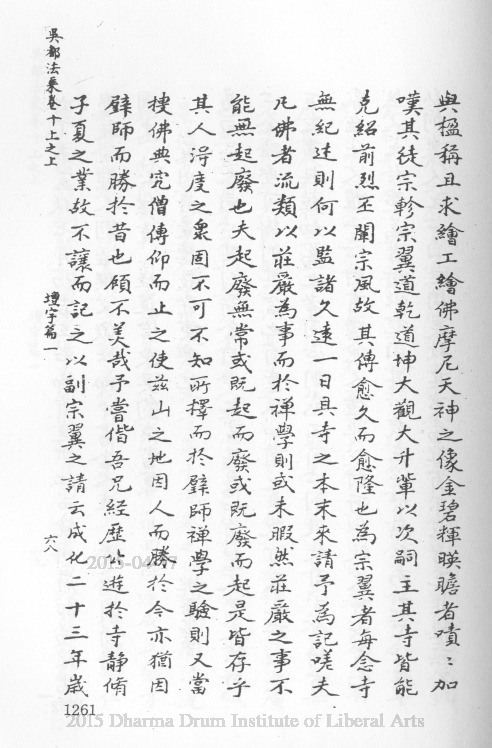 與楹稱且求繪工繪佛摩尼天神之像金碧輝暎瞻者嘖〻加
嘆其徒宗軫宗翼道乾道坤大觀大升輩以次嗣主其寺皆能
克紹前烈丕闡宗風故其傳愈久而愈隆也為宗翼者每念寺
無紀述則何以監諸久遠一日具寺之本末來請予為記嗟夫
凡佛者流類以莊嚴為事而於禅學則或未暇然莊嚴之事不
能無起廢也夫起廢無常或既起而廢或既廢而起是皆存乎
其人淂度之衆固不可不知所擇而於璧師禅學之驗則又當
摟佛典究僧傳仰而止之使兹山之地因人而勝於今亦猶因
璧師而勝於昔也頋不美哉予嘗偕吾兄經歷公遊於寺静脩
子夏之業故不讓而記之以副宗翼之請云成化二十三年歲
吳都法乗卷十上之上
壇宇篇一
六八
1261
2015-04-17
2015 Dharma Drum Institute of Liberal Arts